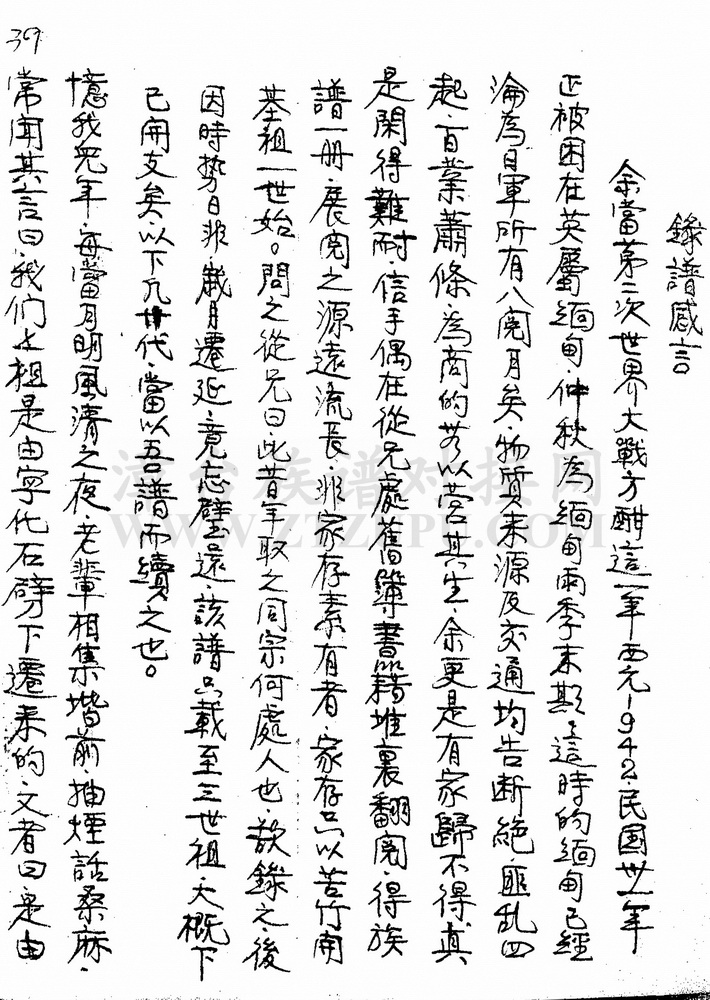 39
錄譜感言
余當第二次世界大戰方酣這一年西元1942.民国卅一年
正被困在英屬緬甸.仲秋為緬甸雨季末期.這時的緬甸已經
淪為日軍所有八閱月矣.物質来源及交通均告断絕.匪乱四
起.百業蕭條.為商的若以营其生.余更是有家歸不得.真
是閑得難耐.信手偶在從兄處舊簿書籍堆裏翻閱.得族
譜一册.展閱之源遠流長.非家存素有者.家存只以苦竹開
基祖一世始。問之從兄曰.此昔年取之同宗何處人也.欲錄之.後
因時势日非.歲月遷延.竟忘璧還.該譜只載至三世祖.大概下
已開支矣.以下几十代.當以吾譜而續之也。
憶我兒年.每當月明風清之夜.老輩相集堦前.抽煙話桑麻.
常聞其言曰.我们上祖是由寧化石劈下遷来的.文者曰是由
漳台族谱对接网
WWW.ZTZUPU.COM